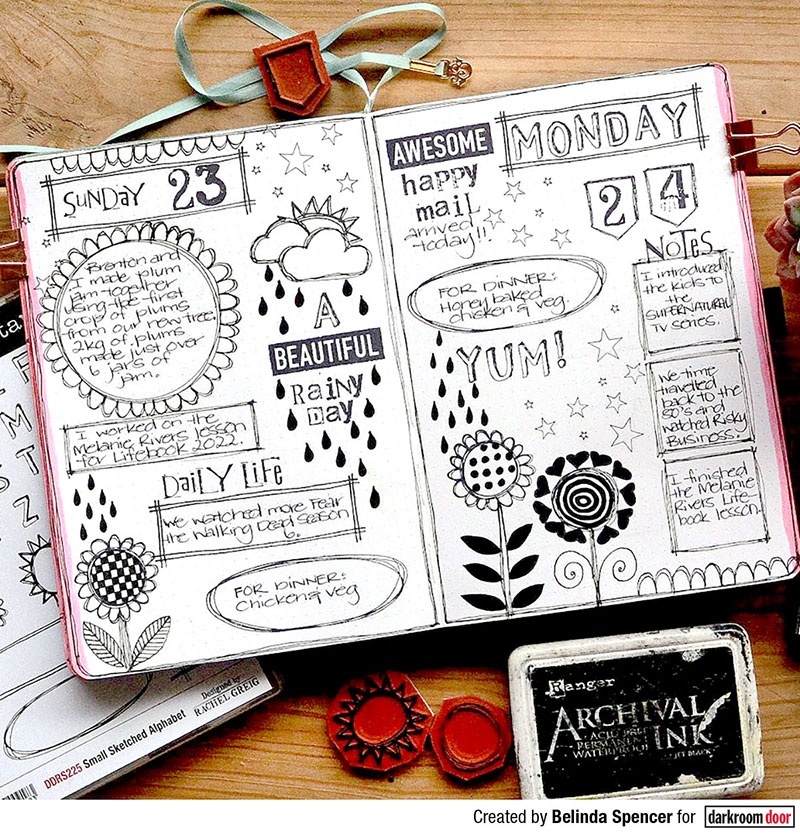 SUNDAY 23
Brenton and
I made plum
jam together
using the first
crop of plums
from our new tree.
2kg of plums
made just over
6 jars of
jam.
A
BEAUTIFUL
RAiNy
DAY
I worked on the
Melanie Rivers lesson
for Lifebook 2022.
DaiLY LiFE
We watched more Fear
the Walking Dead season
6.
FOR DINNER:
chicken & veg
AWESOME
happy
maiL
arrived
today!!
MONDAY
24
NOTES
FOR DINNER:
Honey baked
chicken & veg.
YUM!
I introduced
the kids to
the
SUPERNATURAL
TV series.
We time
travelled
back to the
80's and
watched Risky
Business.
I finished
the Melanie
Rivers Life-
book lesson.
Designed by
RACHEL GREIG
DDRS225 Small Sketched Alphabet
Ranger
ARCHIVAL
INK
PERMANENT
WATERPROOF
JET BLACK
Created by Belinda Spencer for darkroom door